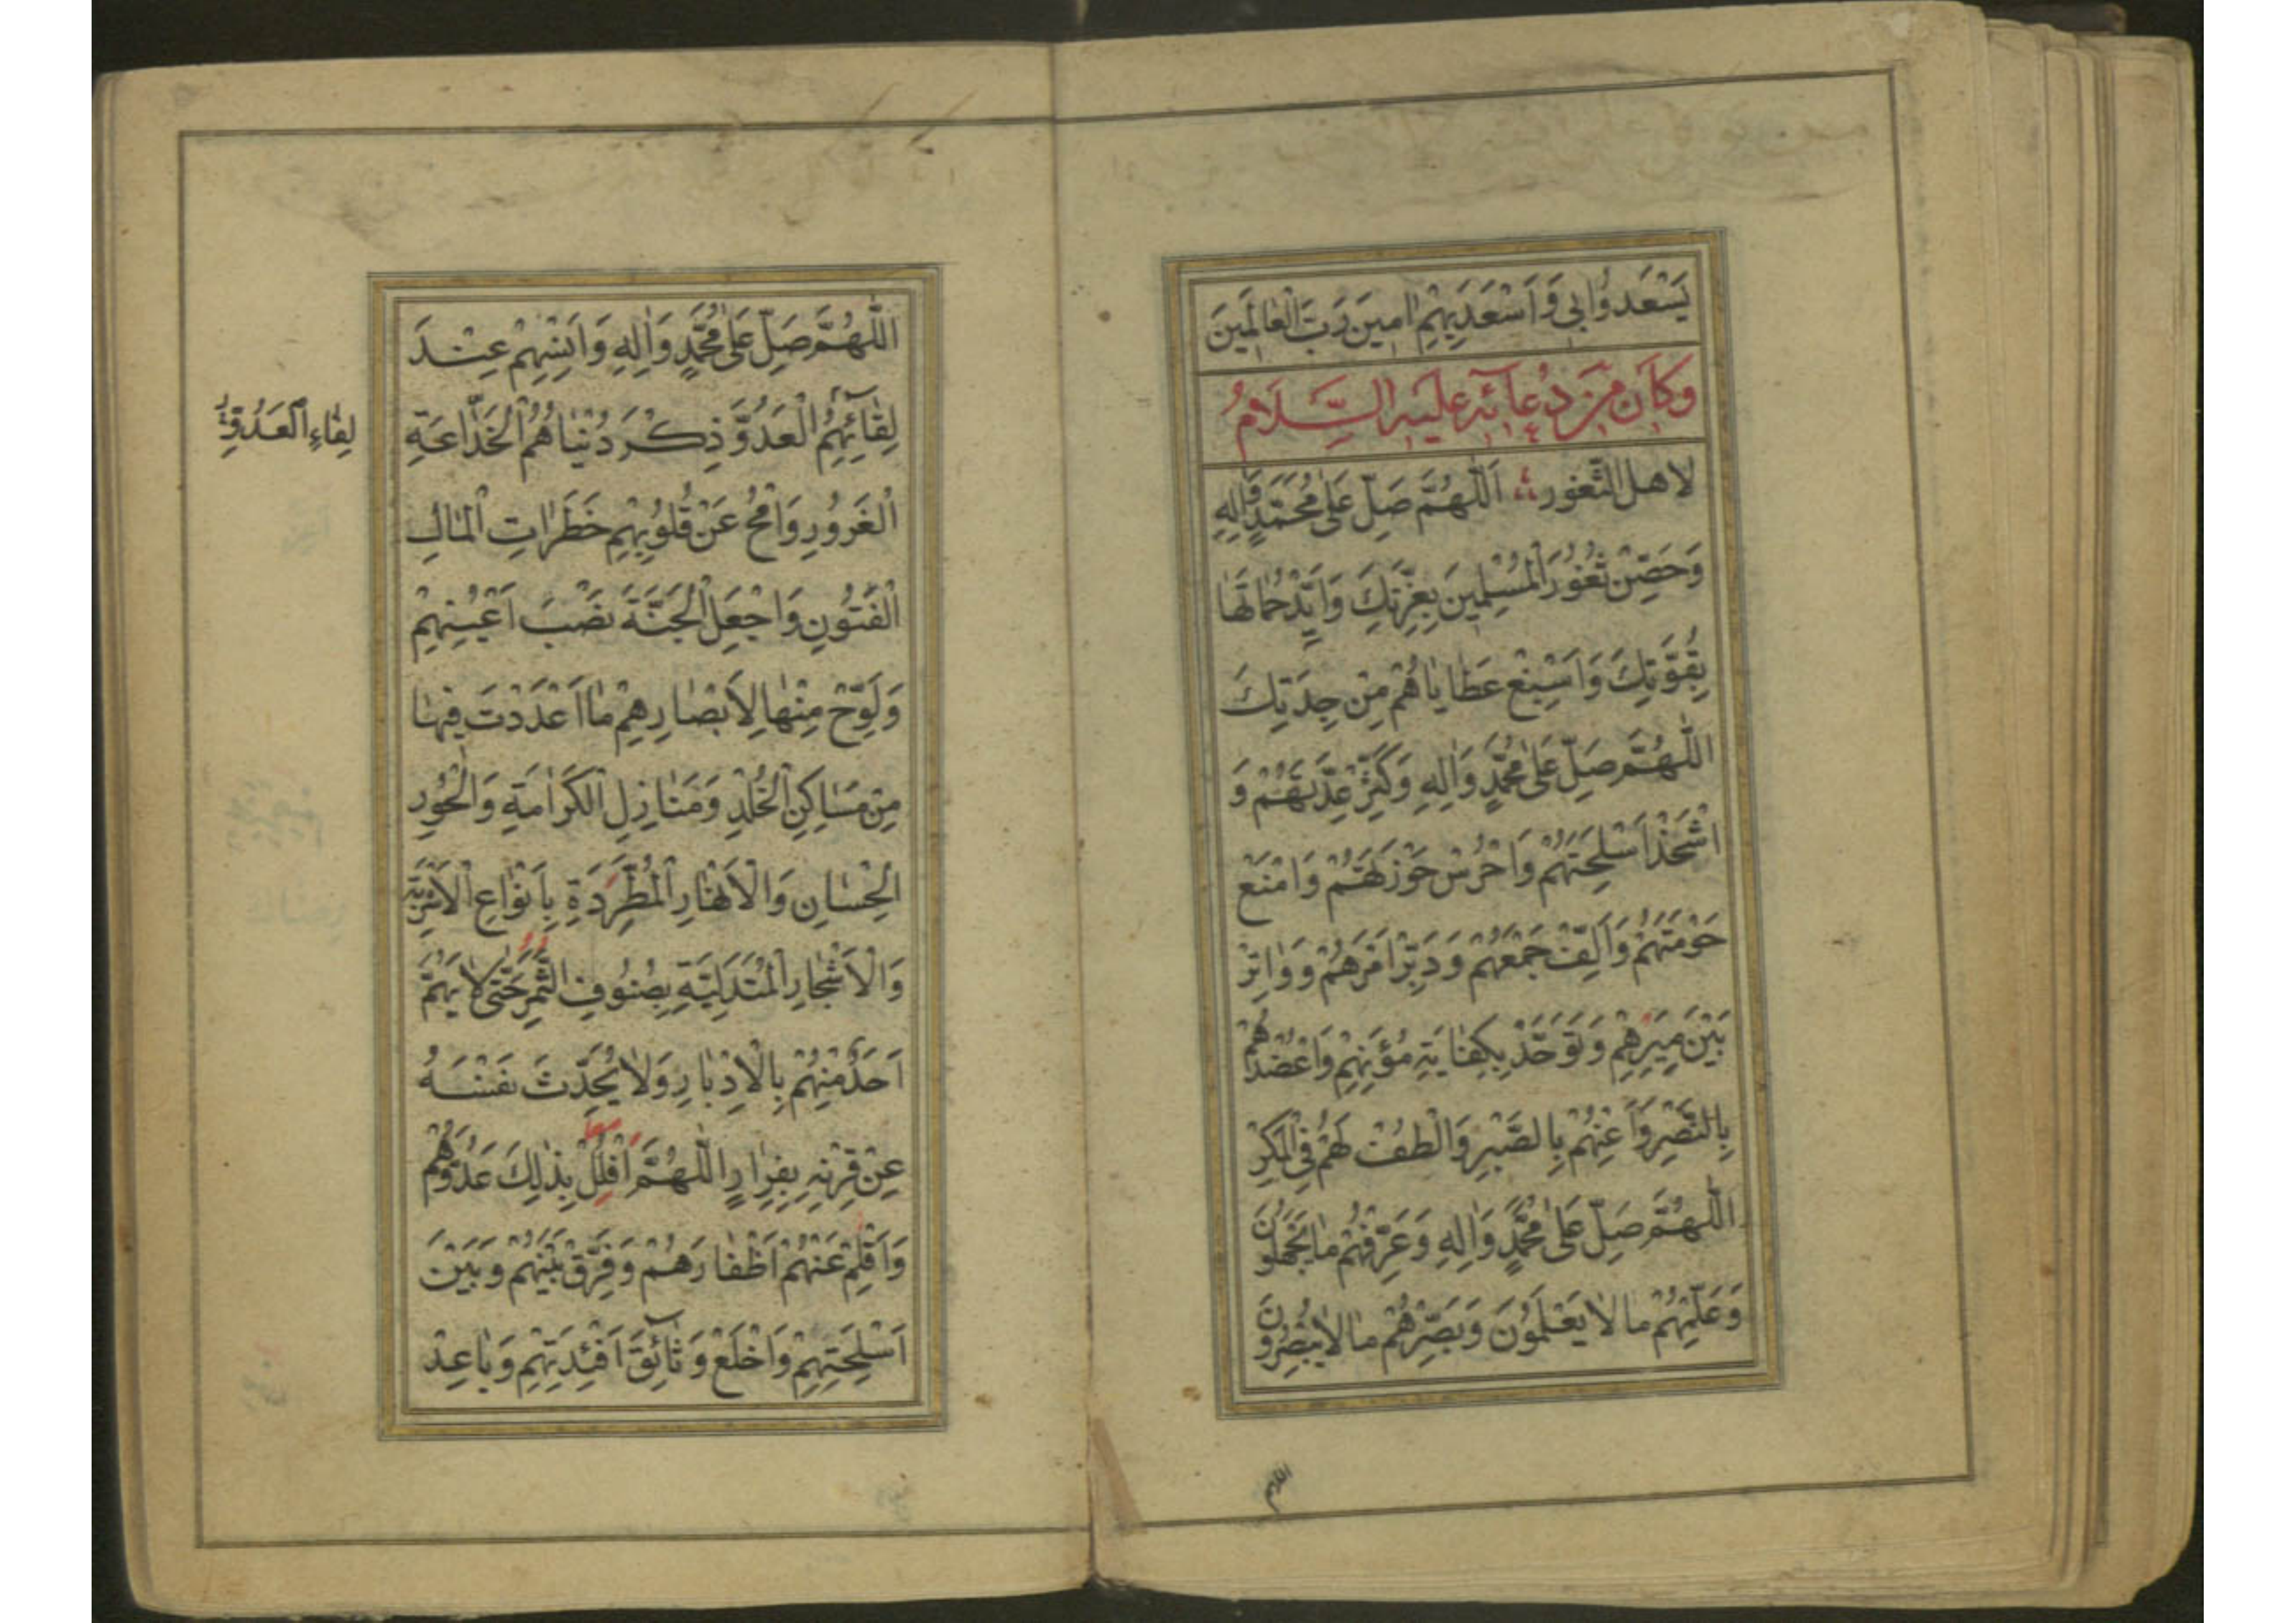 يَسْعَدُوا بِي وَاَسْعَدَ بِهِمْ اٰمِينَ رَبَّ الْعٰالَمِينَ
وَكَانَ مِنْ دُعَائِهِ عَلَيْهِ السَّلَامُ
لاهل الثغور اَللّٰهُمَّ صَلِّ عَلىٰ مُحَمَّدٍ وَاٰلِهِ
وَحَصِّنْ ثُغُورَ الْمُسْلِمِينَ بِعِزَّتِكَ وَاَيِّدْ حُمٰاتَهٰا
بِقُوَّتِكَ وَاَسْبِغْ عَطٰايٰاهُمْ مِنْ جِدَتِكَ
اَللّٰهُمَّ صَلِّ عَلىٰ مُحَمَّدٍ وَاٰلِهِ وَكَثِّرْ عِدَّتَهُمْ وَ
اشْحَذْ اَسْلِحَتَهُمْ وَاحْرُسْ حَوْزَتَهُمْ وَامْنَعْ
حَوْمَتَهُمْ وَاَلِّفْ جَمْعَهُمْ وَدَبِّرْ اَمْرَهُمْ وَوٰاتِرْ
بَيْنَ مِيَرِهِمْ وَتَوَحَّدْ بِكِفٰايَةِ مُؤَنِهِمْ وَاعْضُدْهُمْ
بِالنَّصْرِ وَاَعِنْهُمْ بِالصَّبْرِ وَالْطُفْ لَهُمْ فِي الْمَكْرِ
اَللّٰهُمَّ صَلِّ عَلىٰ مُحَمَّدٍ وَاٰلِهِ وَعَرِّفْهُمْ مٰا يَجْهَلُونَ
وَعَلِّمْهُمْ مٰا لاٰ يَعْلَمُونَ وَبَصِّرْهُمْ مٰا لاٰ يُبْصِرُونَ
اللهم
اَللّٰهُمَّ صَلِّ عَلىٰ مُحَمَّدٍ وَاٰلِهِ وَاَنْسِهِمْ عِنْدَ
لِقٰآئِهِمُ الْعَدُوَّ ذِكْرَ دُنْيٰاهُمُ الْخَدّٰاعَةِ
لِقٰاءِ الْعَدُوِّ
الْغَرُورِ وَامْحُ عَنْ قُلُوبِهِمْ خَطَرٰاتِ الْمٰالِ
الْفَتُونِ وَاجْعَلِ الْجَنَّةَ نَصْبَ اَعْيُنِهِمْ
وَلَوِّحْ مِنْهٰا لِاَبْصٰارِهِمْ مٰا اَعْدَدْتَ فِيهٰا
مِنْ مَسٰاكِنِ الْخُلْدِ وَمَنٰازِلِ الْكَرٰامَةِ وَالْحُورِ
الْحِسٰانِ وَالْاَنْهٰارِ الْمُطَّرِدَةِ بِاَنْوٰاعِ الْاَشْرِبَةِ
وَالْاَشْجٰارِ الْمُتَدَلِّيَةِ بِصُنُوفِ الثَّمَرِ حَتّىٰ لاٰ يَهُمَّ
اَحَدٌ مِنْهُمْ بِالْاِدْبٰارِ وَلاٰ يُحَدِّثَ نَفْسَهُ
عَنْ قِرْنِهِ بِفِرٰارٍ اَللّٰهُمَّ افْلُلْ بِذٰلِكَ عَدُوَّهُمْ
وَاَقْلِمْ عَنْهُمْ اَظْفٰارَهُمْ وَفَرِّقْ بَيْنَهُمْ وَبَيْنَ
اَسْلِحَتِهِمْ وَاخْلَعْ وَثٰائِقَ اَفْئِدَتِهِمْ وَبٰاعِدْ